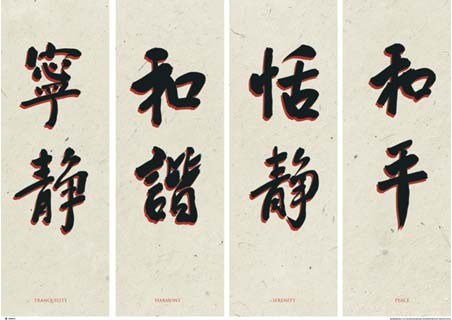 寧靜
TRANQUILITY
和諧
HARMONY
恬靜
SERENITY
和平
PEACE